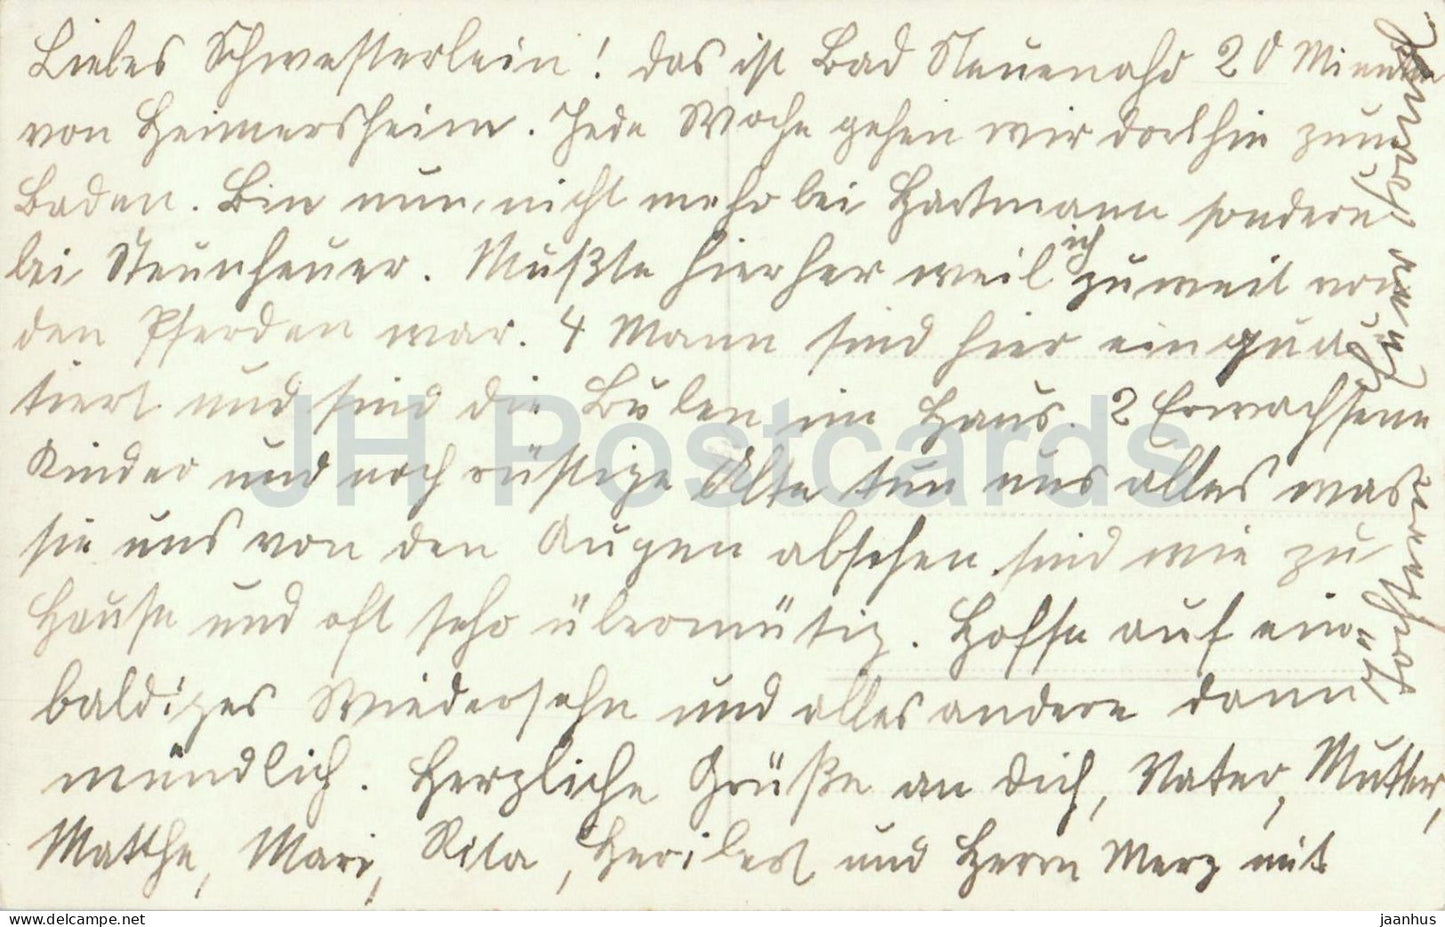 Liebes Schwesterlein! Das ist Bad Neuenahr 20 Minuten
von Heimersheim. Jede Woche gehen wir dorthin zum
Baden. Bin nun nicht mehr bei Hartmann sondern
bei Neunheuer. Mußte hierher weil ich zu weit von
den Pferden war. 4 Mann sind hier einquar
tiert und sind die Buben im Haus. 2 Erwachsene
Kinder und noch rüstige Alte tun uns alles was
sie uns von den Augen absehen. sind wie zu
Hause und oft sehr übermütig. Hoffe auf ein
baldiges Wiedersehn und alles andere dann
mündlich. Herzliche Grüße an Dich, Vater, Mutter,
Matthe, Mari, Rita, und Herrn Merz mit
JH Postcards
delcampe.net
jaanhus